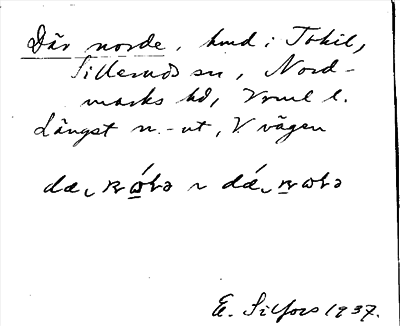 Där norde, hmd i Tokil,
Silleruds sn, Nord-
marks hd, Vrml l.
Längst n.-ut, V vägen
E. Silfors 1937.